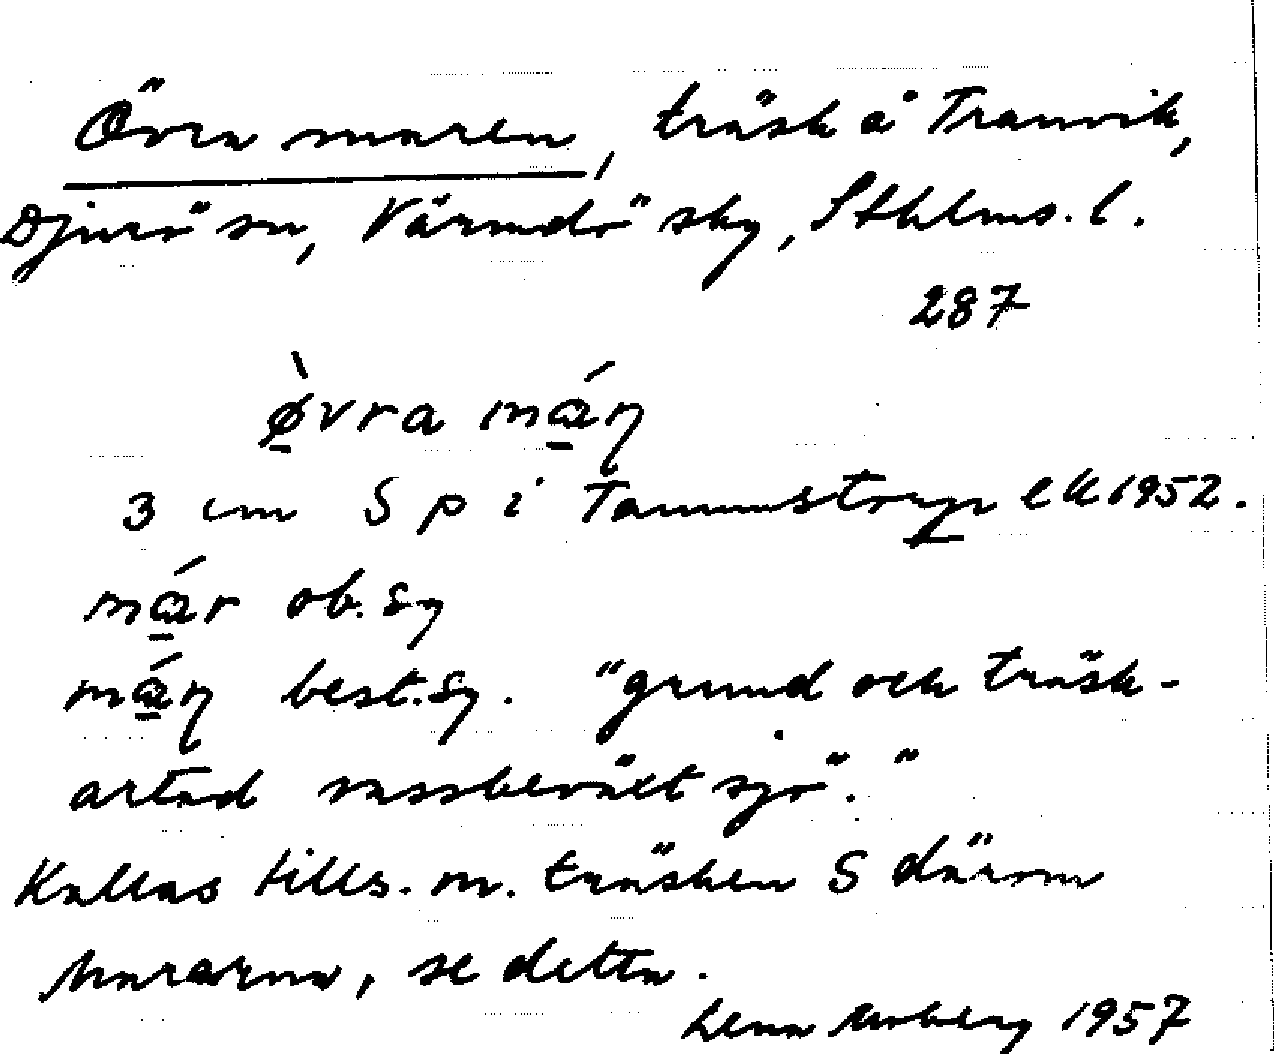 Övra maren, träsk å Tranvik,
Djurö sn, Värmdö skg, Sthlms. l.
287
ø̀vra máṇ
3 cm S p i Tammstorp ek 1952.
már ob. sg
máṇ best. sg. "grund och träsk-
artad vassbeväxt sjö"."
Kallas tills. m. träsken S därom
Mararna, se detta.
Lena Moberg 1957